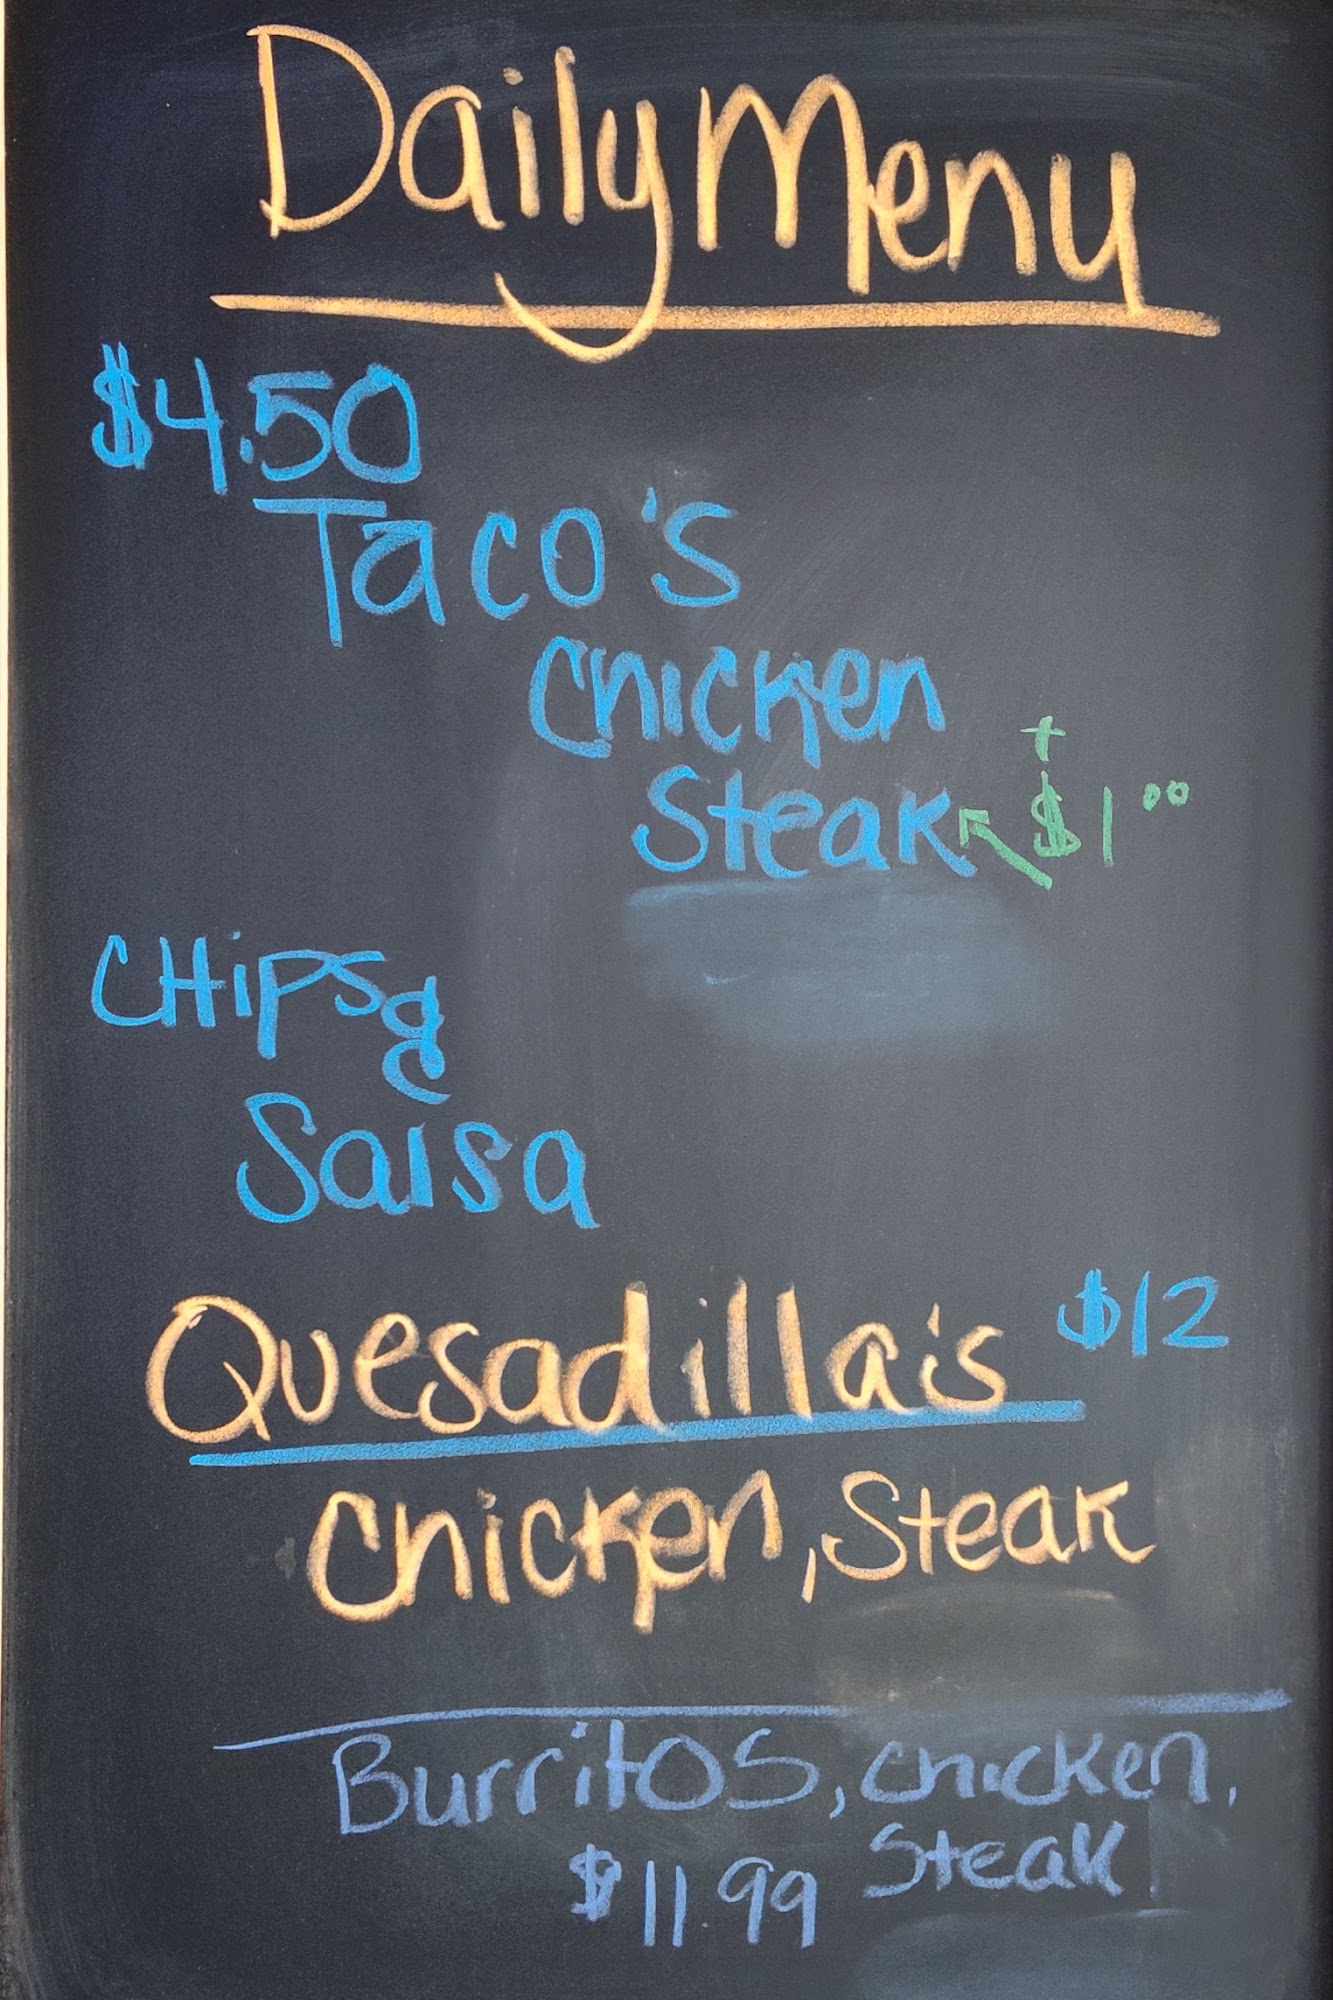 Daily Menu
$4.50
Taco's
Chicken
Steak + $1.00
CHiPS &
Salsa
Quesadilla's $12
Chicken, Steak
Burritos, chicken,
$11.99 Steak